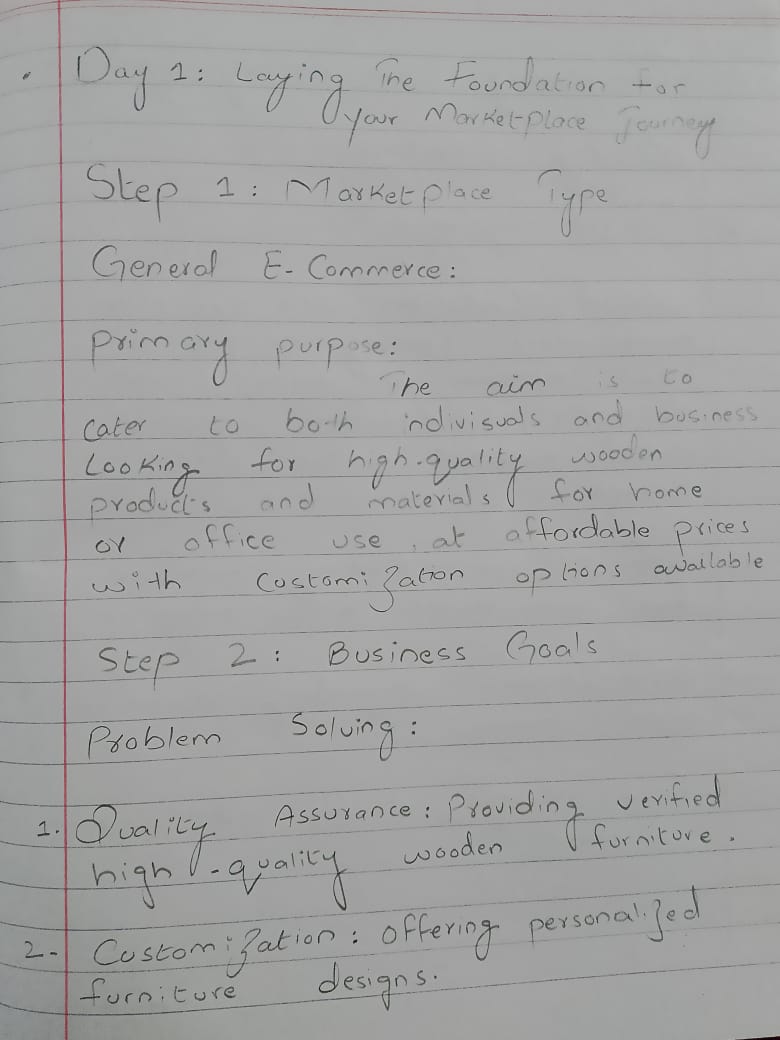 Day 1: Laying The Foundation for
your Marketplace Journey
Step 1: Marketplace Type
General E-Commerce:
Primary purpose:
The aim is to
cater to both indivisuals and business
Looking for high-quality wooden
products and materials for home
or office use, at affordable prices
with Customization options available
Step 2: Business Goals
Problem Solving:
1. Quality Assurance: Providing verified
high-quality wooden furniture.
2- Customization: offering personalized
furniture designs.